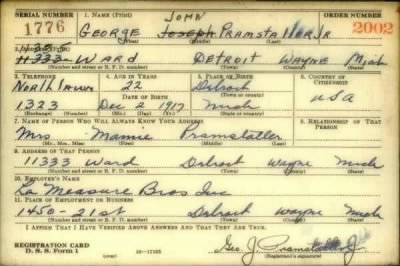 SERIAL NUMBER 1. NAME (Print) ORDER NUMBER
JOHN
1776 GEORGE Joseph PRAMSTALLER Jr 2002
(First) (Middle) (Last)
11333 WARD DETROIT WAYNE Mich
(Number and street or R. F. D. number) (Town) (County) (State)
3. TELEPHONE 4. AGE IN YEARS 5. PLACE OF BIRTH 6. COUNTRY OF CITIZENSHIP
22 Detroit
DATE OF BIRTH (Town or county) USA
1323 Dec 2 1917 Mich
(Exchange) (Number) (Mo.) (Day) (Yr.) (State or country)
7. NAME OF PERSON WHO WILL ALWAYS KNOW YOUR ADDRESS 8. RELATIONSHIP OF THAT PERSON
Mrs Mamie Pramstaller
(Mr., Mrs., Miss) (First) (Middle) (Last)
9. ADDRESS OF THAT PERSON
11333 Ward Detroit Wayne Mich
(Number and street or R. F. D. number) (Town) (County) (State)
10. EMPLOYER'S NAME
La Measure Bros Inc
11. PLACE OF EMPLOYMENT OR BUSINESS
1450 - 21st Detroit Wayne Mich
(Number and street or R. F. D. number) (Town) (County) (State)
I AFFIRM THAT I HAVE VERIFIED ABOVE ANSWERS AND THAT THEY ARE TRUE.
REGISTRATION CARD
D. S. S. Form 1 (over) 16—17105 Geo. J. Pramstaller Jr
(Registrant's signature)